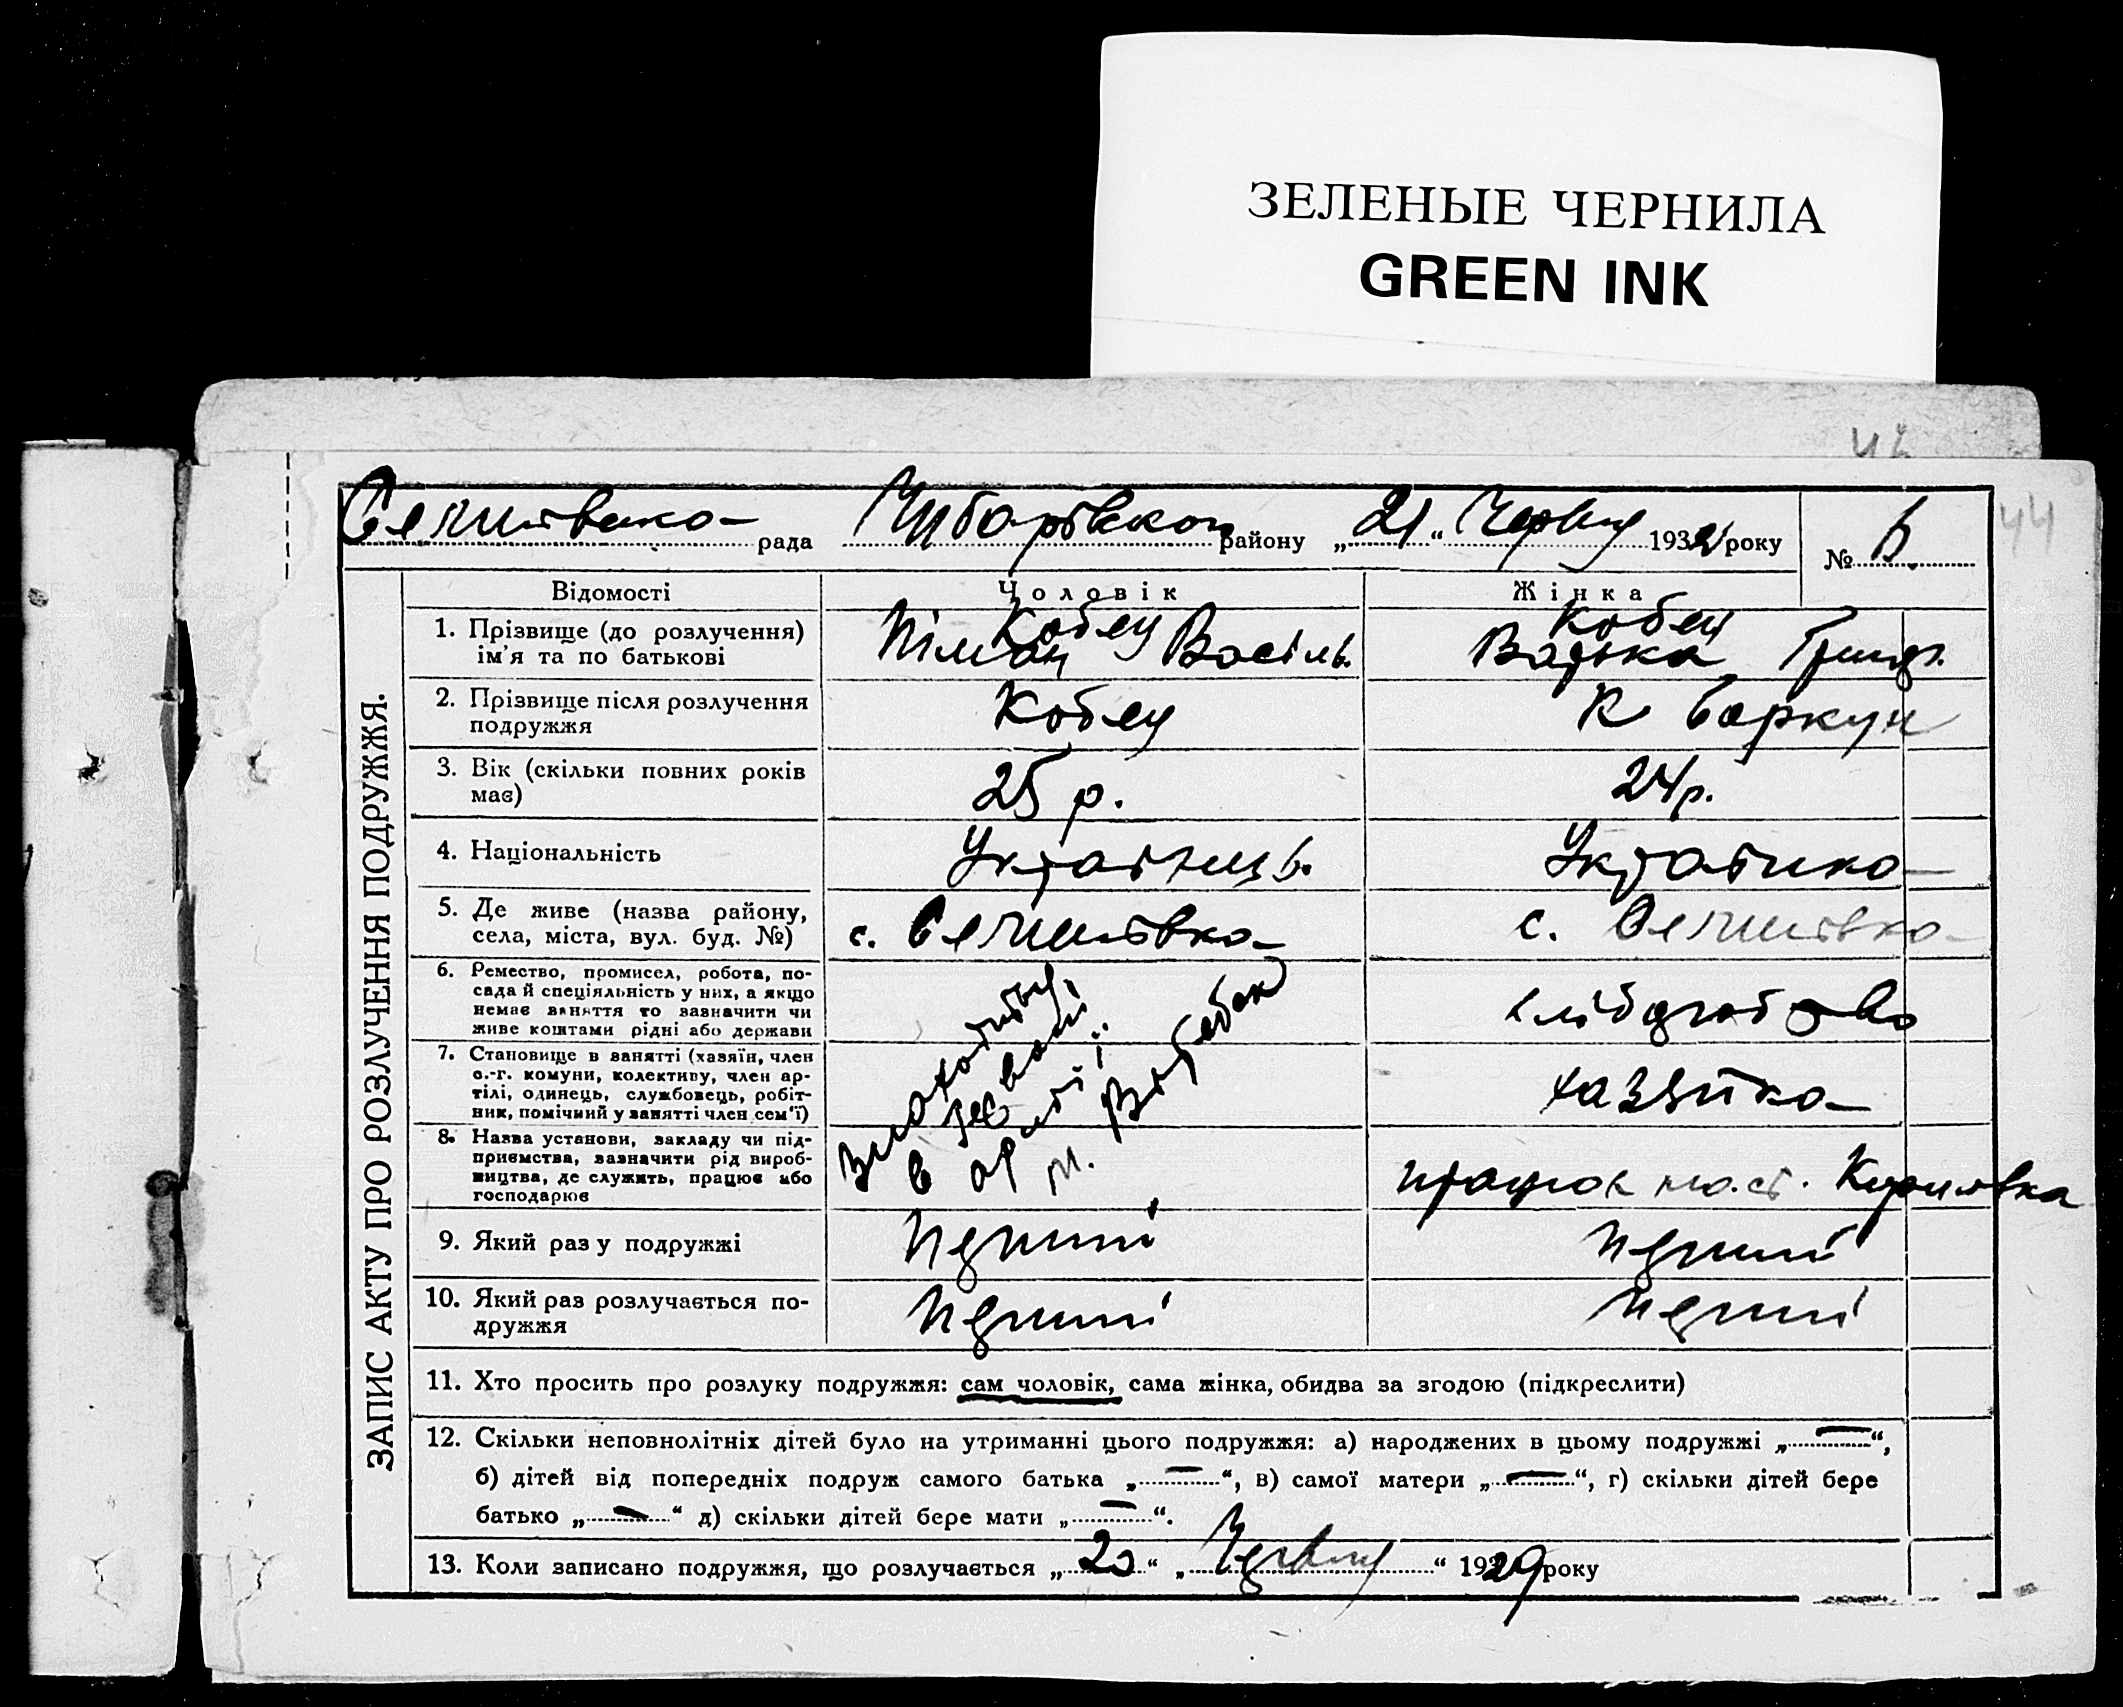 ЗЕЛЕНЫЕ ЧЕРНИЛА
GREEN INK
44
рада району „21“ Червня 1932 року № 6
ЗАПИС АКТУ ПРО РОЗЛУЧЕННЯ ПОДРУЖЖЯ.
Відомості Чоловік Жінка
1. Прізвище (до розлучення) Кобец Кобец
ім'я та по батькові Васіль. Григ.
2. Прізвище після розлучення Кобец Коваркун
подружжя
3. Вік (скільки повних років 25 р. 24 р.
має)
4. Національність Українець. Українка
5. Де живе (назва району, с. Селитівка с. Селитівка
села, міста, вул. буд. №)
6. Ремество, промисел, робота, по-
сада й спеціяльність у них, а якщо
немає заняття то зазначити чи хліборобство
живе коштами рідні або держави
7. Становище в занятті (хазяїн, член
с.-г. комуни, колективу, член ар-
тілі, одинець, службовець, робіт- хазяйка
ник, помічний у занятті член сем'ї)
8. Назва установи, закладу чи під-
приємства, зазначити рід вироб-
ництва, де служить, працює або працює
господарює
в армії
м.
9. Який раз у подружжі перший перший
10. Який раз розлучається по- перший перший
дружжя
11. Хто просить про розлуку подружжя: сам чоловік, сама жінка, обидва за згодою (підкреслити)
12. Скільки неповнолітніх дітей було на утриманні цього подружжя: а) народжених в цьому подружжі „—“,
б) дітей від попередніх подруж самого батька „—“, в) самої матери „—“, г) скільки дітей бере
батько „—“ д) скільки дітей бере мати „—“.
13. Коли записано подружжя, що розлучається „20“ „Червня“ 1929 року